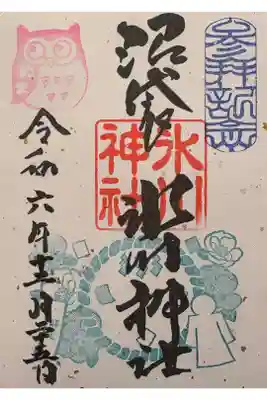 参拝記念
沼袋
氷川神社
氷川神社
令和六年十二月二十五日